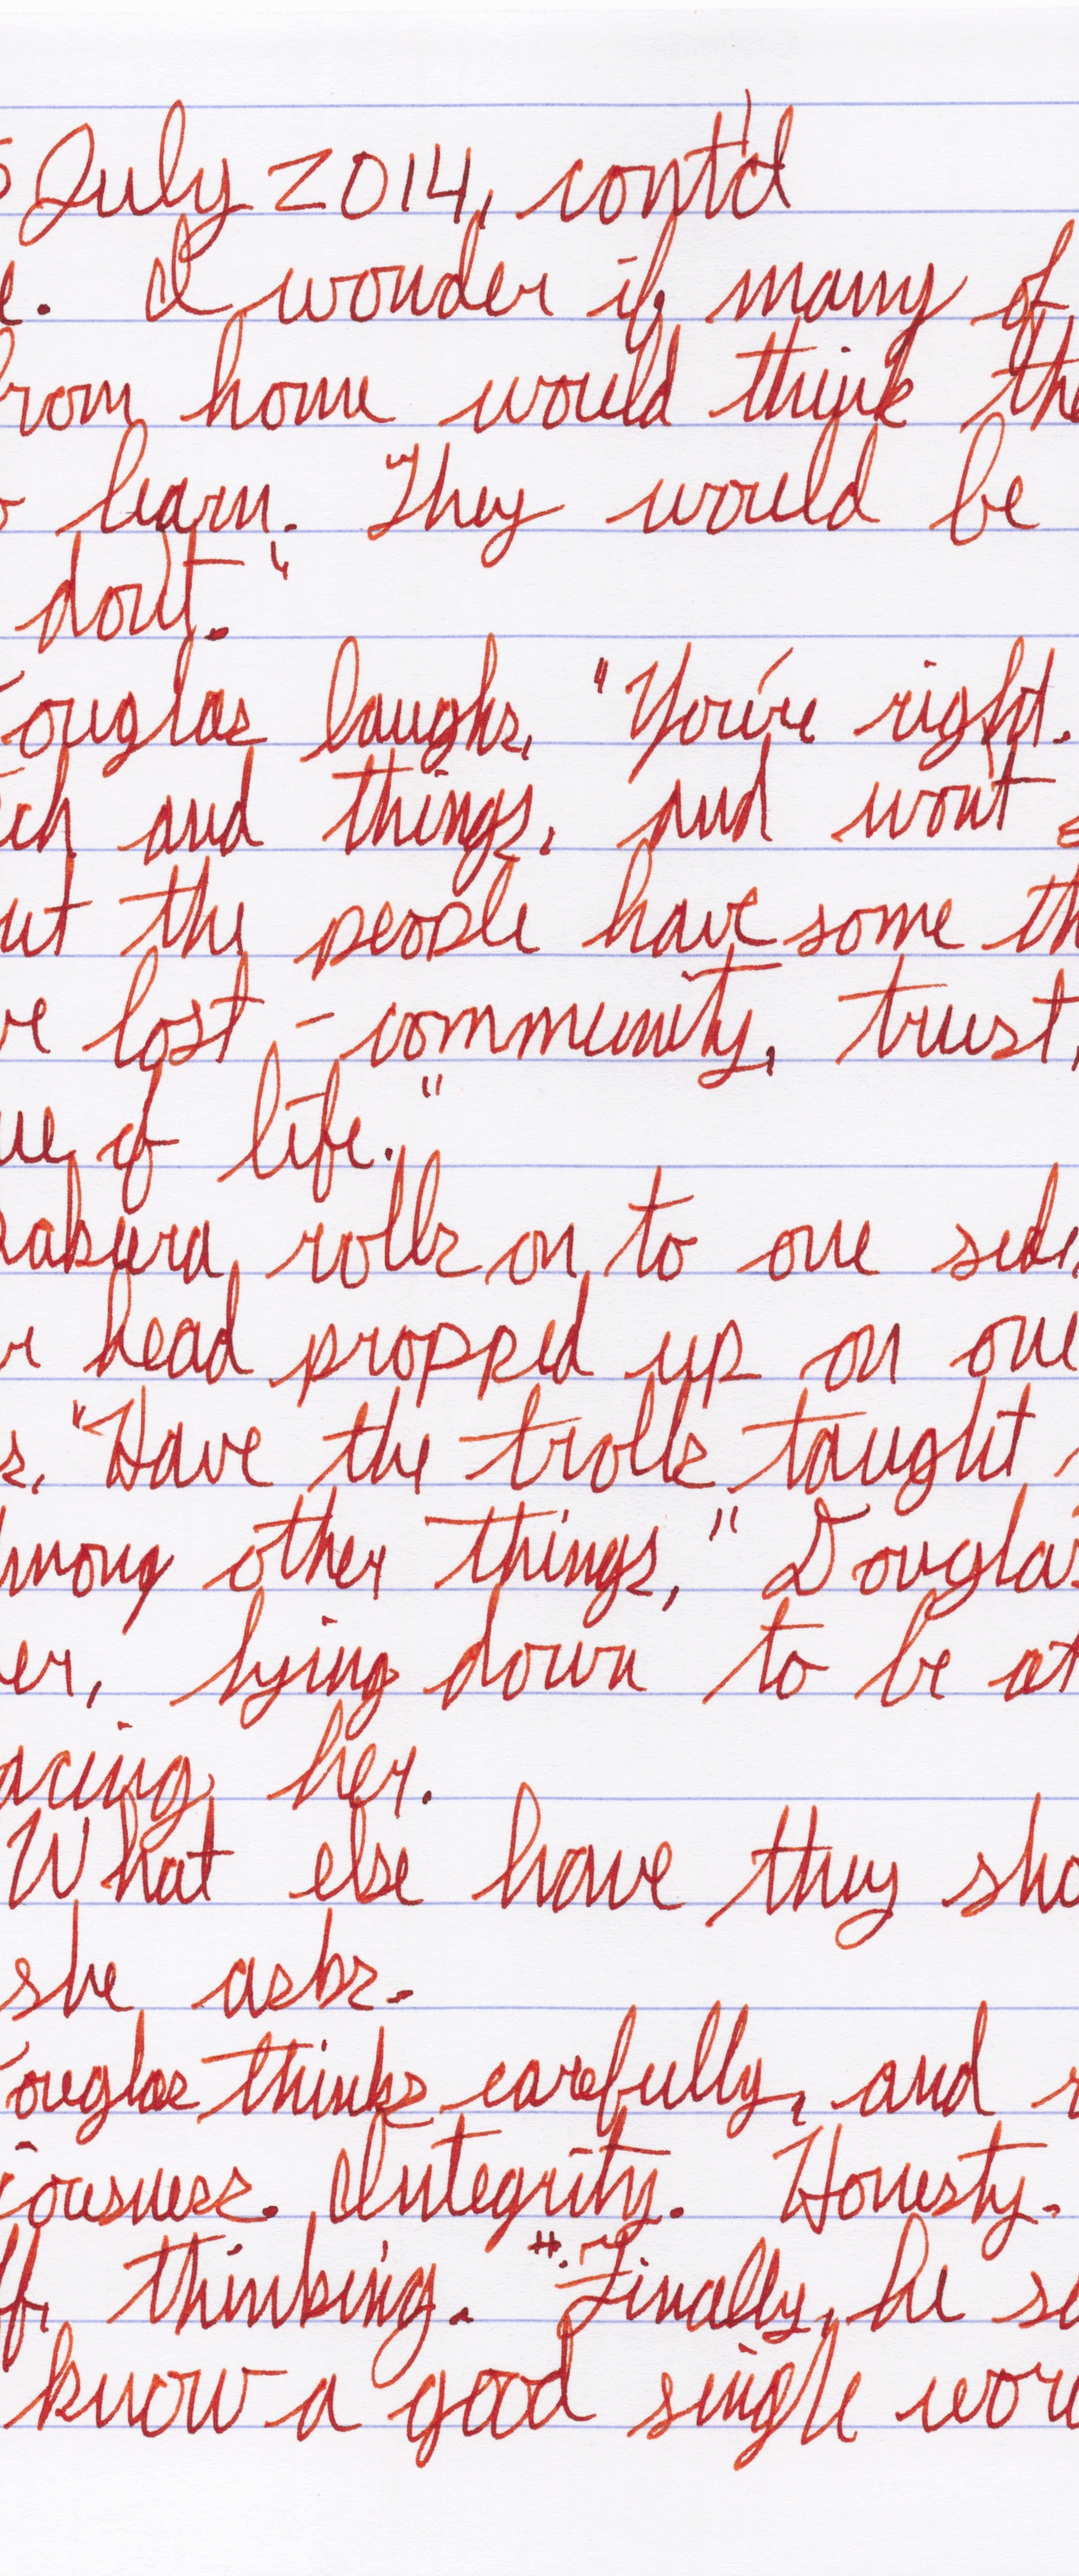 5 July 2014, cont'd
e. I wonder if many of
from home would think the
o learn. They would be
don't."
Douglas laughs, "You're right.
ch and things, and won't
ut the people have some th
ve lost - community, trust,
ue of life."
Sakura rolls on to one side,
r head propped up on one
s, "Have the trolls taught
Among other things," Douglas
er, lying down to be at
acing her.
What else have they sho
she asks.
Douglas thinks carefully, and r
iousness. Integrity. Honesty.
ff, thinking. "Finally, he sa
know a good single wor